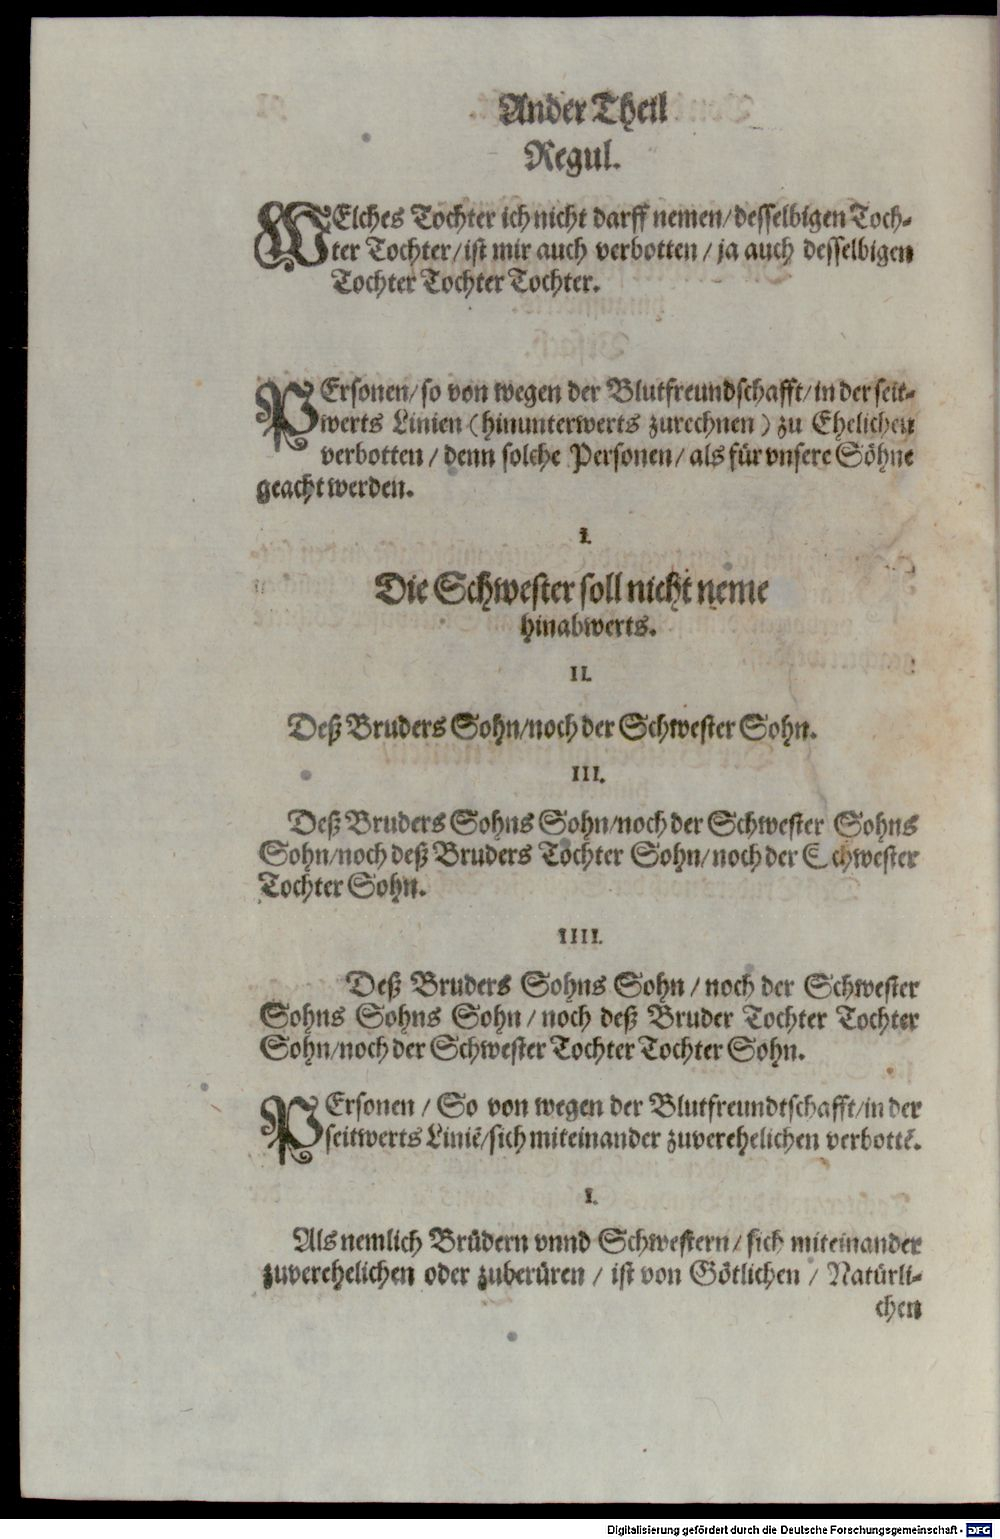 Ander Theil
Regul.
WElches Tochter ich nicht darff nemen/desselbigen Toch-
ter Tochter/ist mir auch verbotten/ja auch desselbigen
Tochter Tochter Tochter.
PErsonen/so von wegen der Blutfreundschafft/in der seit-
werts Linien (hinunterwerts zurechnen) zu Ehelichen
verbotten/denn solche Personen/als für vnsere Söhne
geacht werden.
I.
Die Schwester soll nicht neme
hinabwerts.
II.
Deß Bruders Sohn/noch der Schwester Sohn.
III.
Deß Bruders Sohns Sohn/noch der Schwester Sohns
Sohn/noch deß Bruders Tochter Sohn/noch der Schwester
Tochter Sohn.
IIII.
Deß Bruders Sohns Sohn/noch der Schwester
Sohns Sohns Sohn/noch deß Bruder Tochter Tochter
Sohn/noch der Schwester Tochter Tochter Sohn.
PErsonen/So von wegen der Blutfreundtschafft/in der
seitwerts Liniē/sich miteinander zuverehelichen verbottē.
I.
Als nemlich Brüdern vnnd Schwestern/sich miteinander
zuverehelichen oder zuberüren/ist von Götlichen/Natürli-
chen
Digitalisierung gefördert durch die Deutsche Forschungsgemeinschaft - DFG